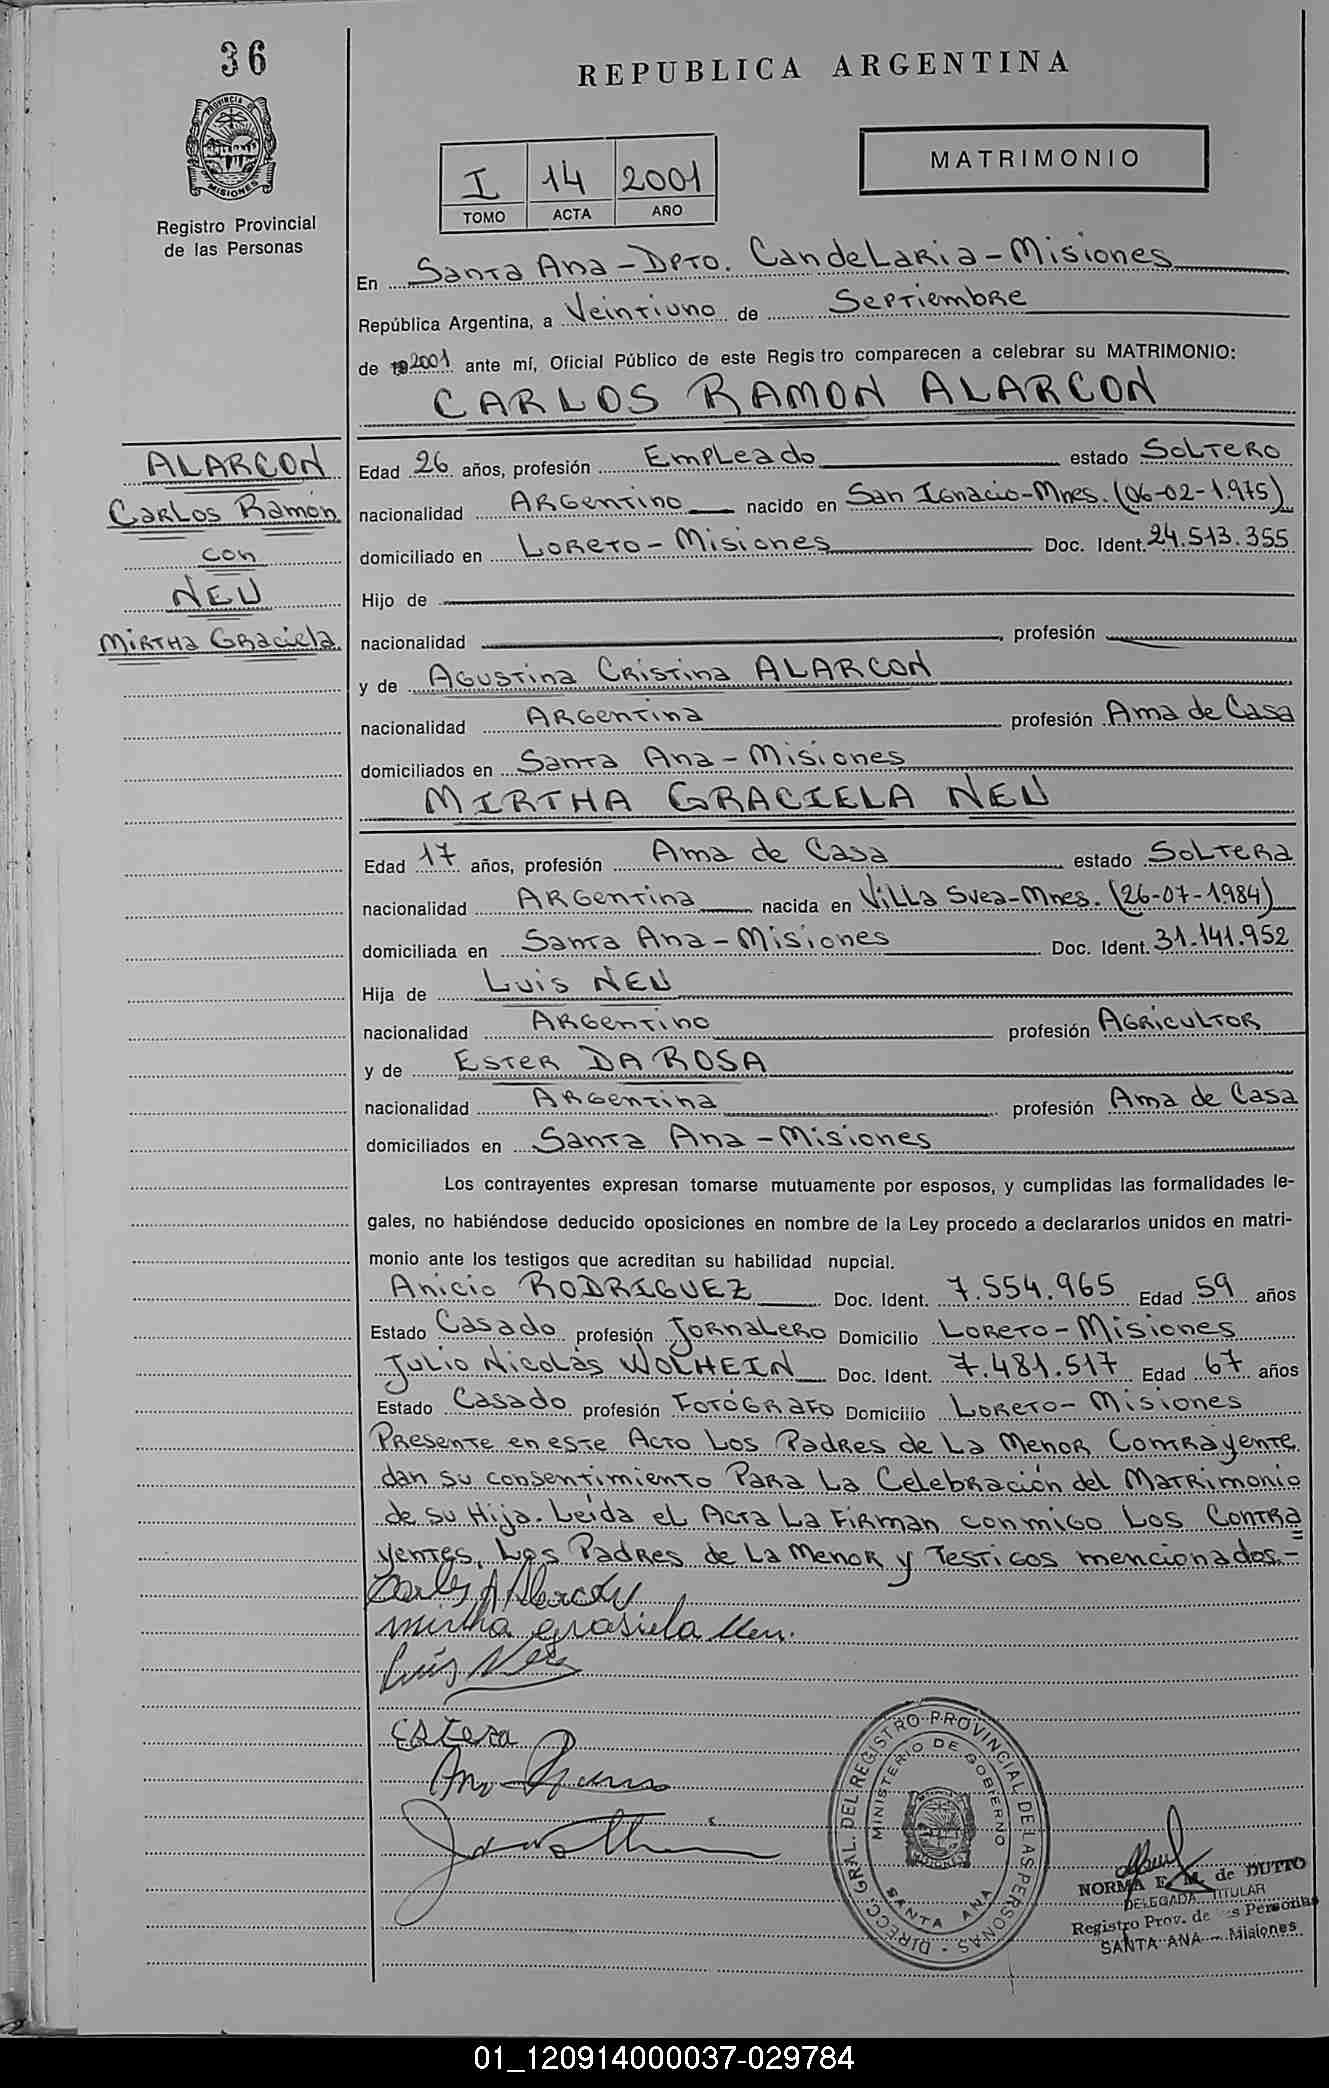 36
REPUBLICA ARGENTINA
PROVINCIA DE
MISIONES
Registro Provincial
de las Personas
MATRIMONIO
I 14 2001
TOMO ACTA AÑO
En Santa Ana - Dpto. Candelaria - Misiones
República Argentina, a Veintiuno de Septiembre
de 19 2001 ante mí, Oficial Público de este Regis tro comparecen a celebrar su MATRIMONIO:
CARLOS RAMON ALARCON
ALARCON
Carlos Ramón
con
NEU
Mirtha Graciela
Edad 26 años, profesión Empleado estado Soltero
nacionalidad Argentino nacido en San Ignacio-Mnes. (06-02-1.975)
domiciliado en Loreto - Misiones Doc. Ident. 24.513.355
Hijo de
nacionalidad , profesión
y de Agustina Cristina ALARCON
nacionalidad Argentina profesión Ama de Casa
domiciliados en Santa Ana - Misiones
MIRTHA GRACIELA NEU
Edad 17 años, profesión Ama de Casa estado Soltera
nacionalidad Argentina nacida en Villa Svea-Mnes. (26-07-1.984)
domiciliada en Santa Ana - Misiones Doc. Ident. 31.141.952
Hija de Luis NEU
nacionalidad Argentino profesión Agricultor
y de Ester DA ROSA
nacionalidad Argentina profesión Ama de Casa
domiciliados en Santa Ana - Misiones
Los contrayentes expresan tomarse mutuamente por esposos, y cumplidas las formalidades le-
gales, no habiéndose deducido oposiciones en nombre de la Ley procedo a declararlos unidos en matri-
monio ante los testigos que acreditan su habilidad nupcial.
Anicio RODRIGUEZ Doc. Ident. 7.554.965 Edad 59 años
Estado Casado profesión Jornalero Domicilio Loreto - Misiones
Julio Nicolás WOLHEIN Doc. Ident. 7.481.517 Edad 67 años
Estado Casado profesión Fotógrafo Domicilio Loreto - Misiones
Presente en este Acto Los Padres de La Menor Contrayente
dan su consentimiento Para La Celebración del Matrimonio
de su Hija. Leída el Acta La Firman conmigo Los Contra=
yentes, Los Padres de La Menor y Testigos mencionados.-
mirtha grasiela Neu.
Luis Neu
Estera
DIRECC. GRAL. DEL REGISTRO PROVINCIAL DE LAS PERSONAS
MINISTERIO DE GOBIERNO
MISIONES
SANTA ANA
NORMA E. M. de DUTTO
DELEGADA TITULAR
Registro Prov. de las Personas
SANTA ANA - Misiones
01_120914000037-029784